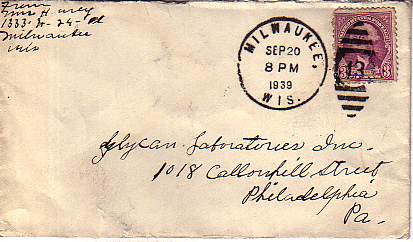 From
Mrs H
1333 24
Milwaukee
Wis
MILWAUKEE,
SEP 20
8 PM
1939
WIS.
13
3 3
Glycan Laboratories Inc.
1018 Callowhill Street
Philadelphia
Pa.